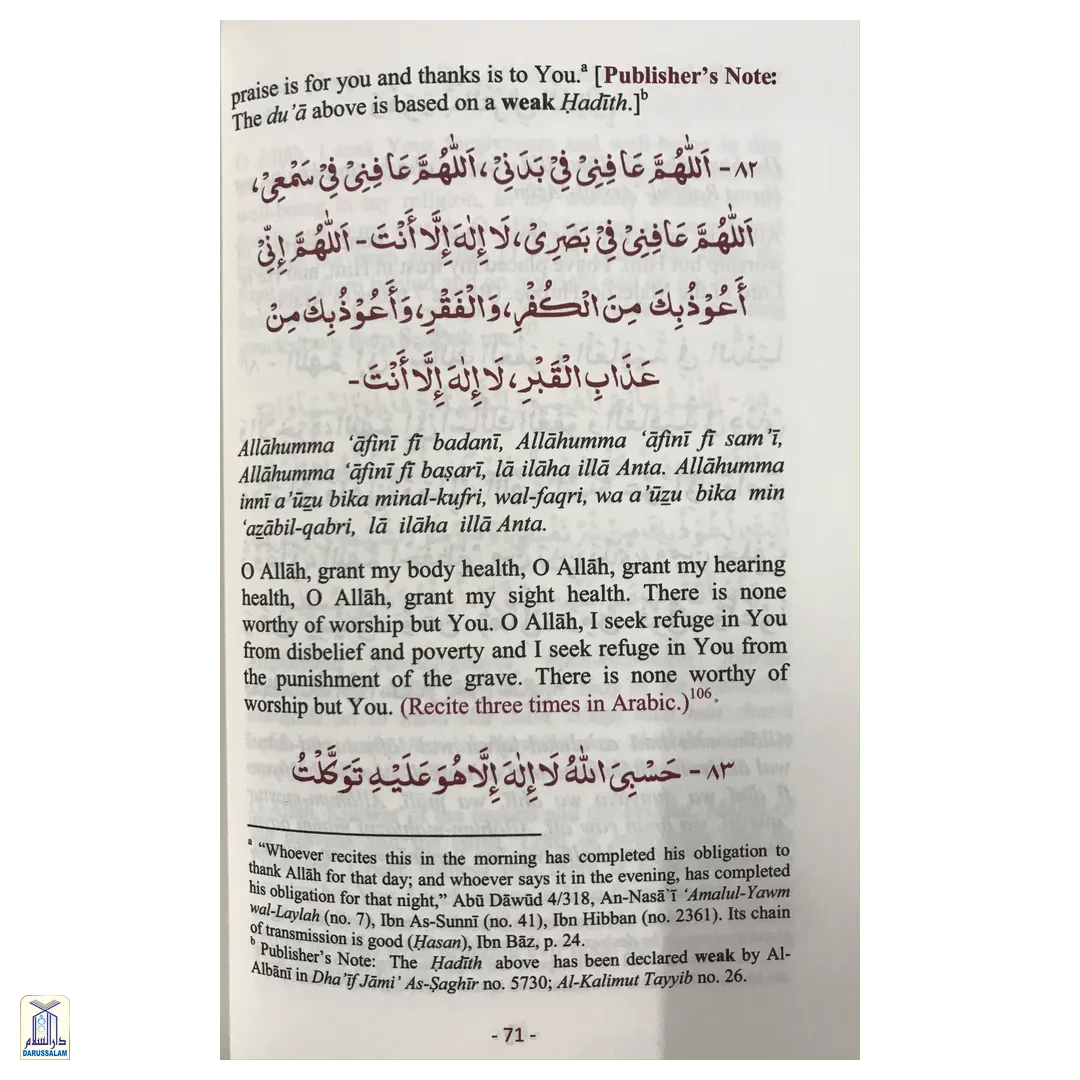 praise is for you and thanks is to You.ᵃ [Publisher's Note:
The du'ā above is based on a weak Ḥadīth.]ᵇ
٨٢- اَللّٰهُمَّ عَافِنِيْ فِيْ بَدَنِيْ، اَللّٰهُمَّ عَافِنِيْ فِيْ سَمْعِيْ،
اَللّٰهُمَّ عَافِنِيْ فِيْ بَصَرِيْ، لَا إِلٰهَ إِلَّا أَنْتَ- اَللّٰهُمَّ إِنِّيْ
أَعُوْذُبِكَ مِنَ الْكُفْرِ، وَالْفَقْرِ، وَأَعُوْذُبِكَ مِنْ
عَذَابِ الْقَبْرِ، لَا إِلٰهَ إِلَّا أَنْتَ-
Allāhumma 'āfinī fī badanī, Allāhumma 'āfinī fī sam'ī,
Allāhumma 'āfinī fī baṣarī, lā ilāha illā Anta. Allāhumma
innī a'ūẕu bika minal-kufri, wal-faqri, wa a'ūẕu bika min
'aẕābil-qabri, lā ilāha illā Anta.
O Allāh, grant my body health, O Allāh, grant my hearing
health, O Allāh, grant my sight health. There is none
worthy of worship but You. O Allāh, I seek refuge in You
from disbelief and poverty and I seek refuge in You from
the punishment of the grave. There is none worthy of
worship but You. (Recite three times in Arabic.)¹⁰⁶
٨٣- حَسْبِيَ اللّٰهُ لَا إِلٰهَ إِلَّا هُوَ عَلَيْهِ تَوَكَّلْتُ
ᵃ "Whoever recites this in the morning has completed his obligation to
thank Allāh for that day; and whoever says it in the evening, has completed
his obligation for that night," Abū Dāwūd 4/318, An-Nasā`ī 'Amalul-Yawm
wal-Laylah (no. 7), Ibn As-Sunnī (no. 41), Ibn Hibban (no. 2361). Its chain
of transmission is good (Ḥasan), Ibn Bāz, p. 24.
ᵇ Publisher's Note: The Ḥadīth above has been declared weak by Al-
Albānī in Dha'īf Jāmi' As-Ṣaghīr no. 5730; Al-Kalimut Tayyib no. 26.
- 71 -
دارالسلام
DARUSSALAM